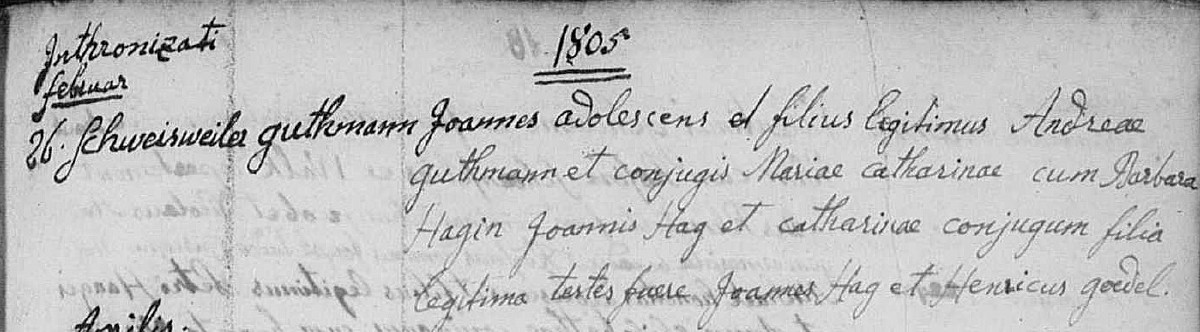 Inthronizati
1805
februar
26. Schweisweiler guthmann Joannes adolescens et filius legitimus Andreae
guthmann et conjugis Mariae catharinae cum Barbara
Hagin Joannis Hag et catharinae conjugum filia
legitima testes fuere Joannes Hag et Henricus goedel.
Aprilis.